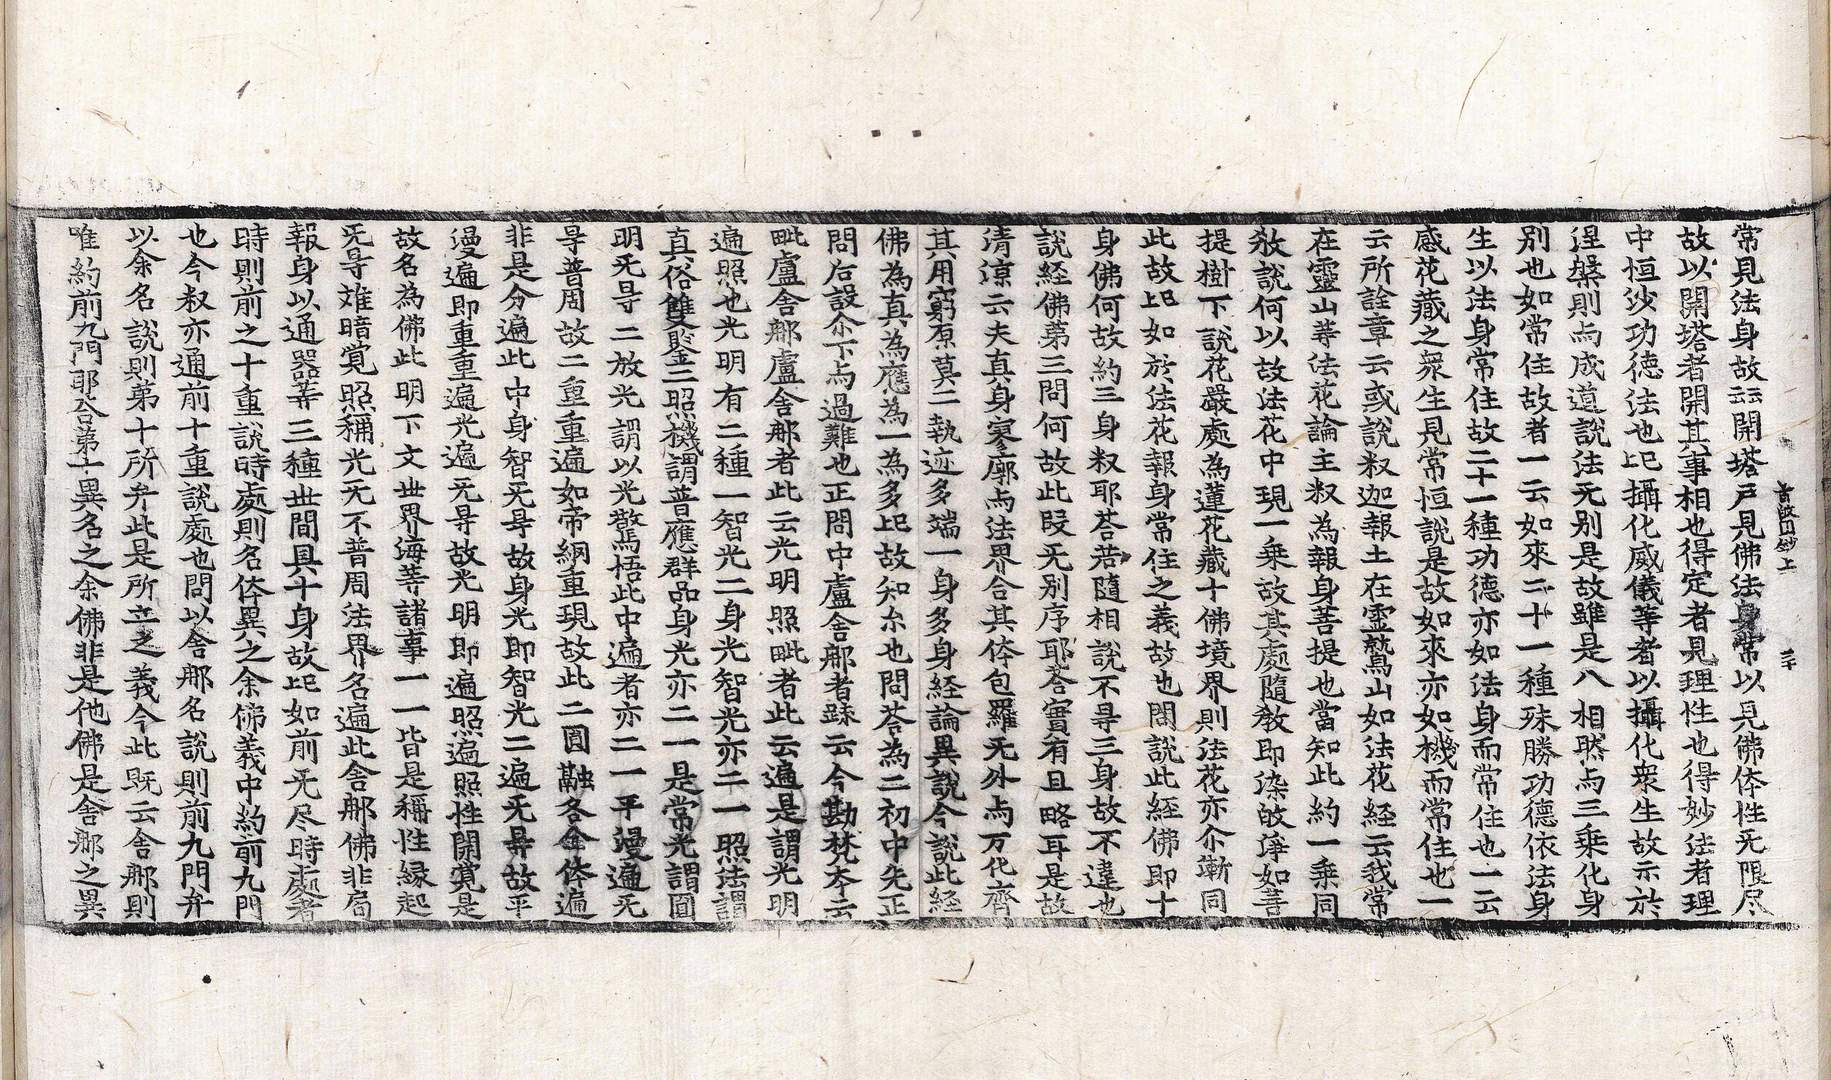 常見法身故云開塔戶見佛法身常以見佛体性无限尽
故以開塔者開其事相也得定者見理性也得妙法者理
中恒沙功德法也巳攝化威儀等者以攝化衆生故示於
涅槃則与成道說法无别是故雖是八相㷼与三乗化身
别也如常住故者一云如來二十一種殊勝功德依法身
生以法身常住故二十一種功德亦如法身而常住也一云
感花藏之衆生見常恒說是故如來亦如機而常住也一
云所詮章云或說釈迦報土在霊鷲山如法花経云我常
在靈山等法花論主釈為報身菩提也當知此約一乗同
敎說何以故法花中現一乗故其處隨敎即染故浄如菩
提樹下說花嚴處為蓮花藏十佛境界則法花亦尒漸同
此故巳如於法花報身常住之義故也問說此経佛即十
身佛何故約三身釈耶荅若隨相說不㝵三身故不違也
說経佛第三問何故此叚无别序耶荅實有且略耳是故
清凉云夫真身寥廓与法界合其体包羅无外与万化齊
其用窮原莫二執迹多端一身多身経論異說今說此経
佛為真為應為一為多巳故知尒也問荅為三初中先正
問后設尒下与過難也正問中盧舍那者䟽云今勘梵本云
毗盧舍那盧舍那者此云光明照毗者此云遍是謂光明
遍照也光明有二種一智光二身光智光亦二一照法謂
真俗雙鑒二照機謂普應群品身光亦二一是常光謂圓
明无㝵二放光謂以光警悟此中遍者亦二一平漫遍无
㝵普周故二重重遍如帝網重現故此二圓融各全体遍
非是分遍此中身智无㝵故身光即智光二遍无㝵故平
漫遍即重重遍光遍无㝵故光明即遍照遍照性開覚是
故名為佛此明下文世界海等諸事一一皆是稱性緣起
无㝵雉暗覚照稱光无不普周法界名遍此舍那佛非局
報身以通器等三種世間具十身故巳如前无尽時處者
時則前之十重說時處則名体異之余佛義中約前九門
也今叔亦通前十重說處也問以舍那名說則前九門弁
以余名說則第十所弁此是所立之義今此既云舍那則
唯約前九門耶荅第十異名之余佛非是他佛是舍那之異